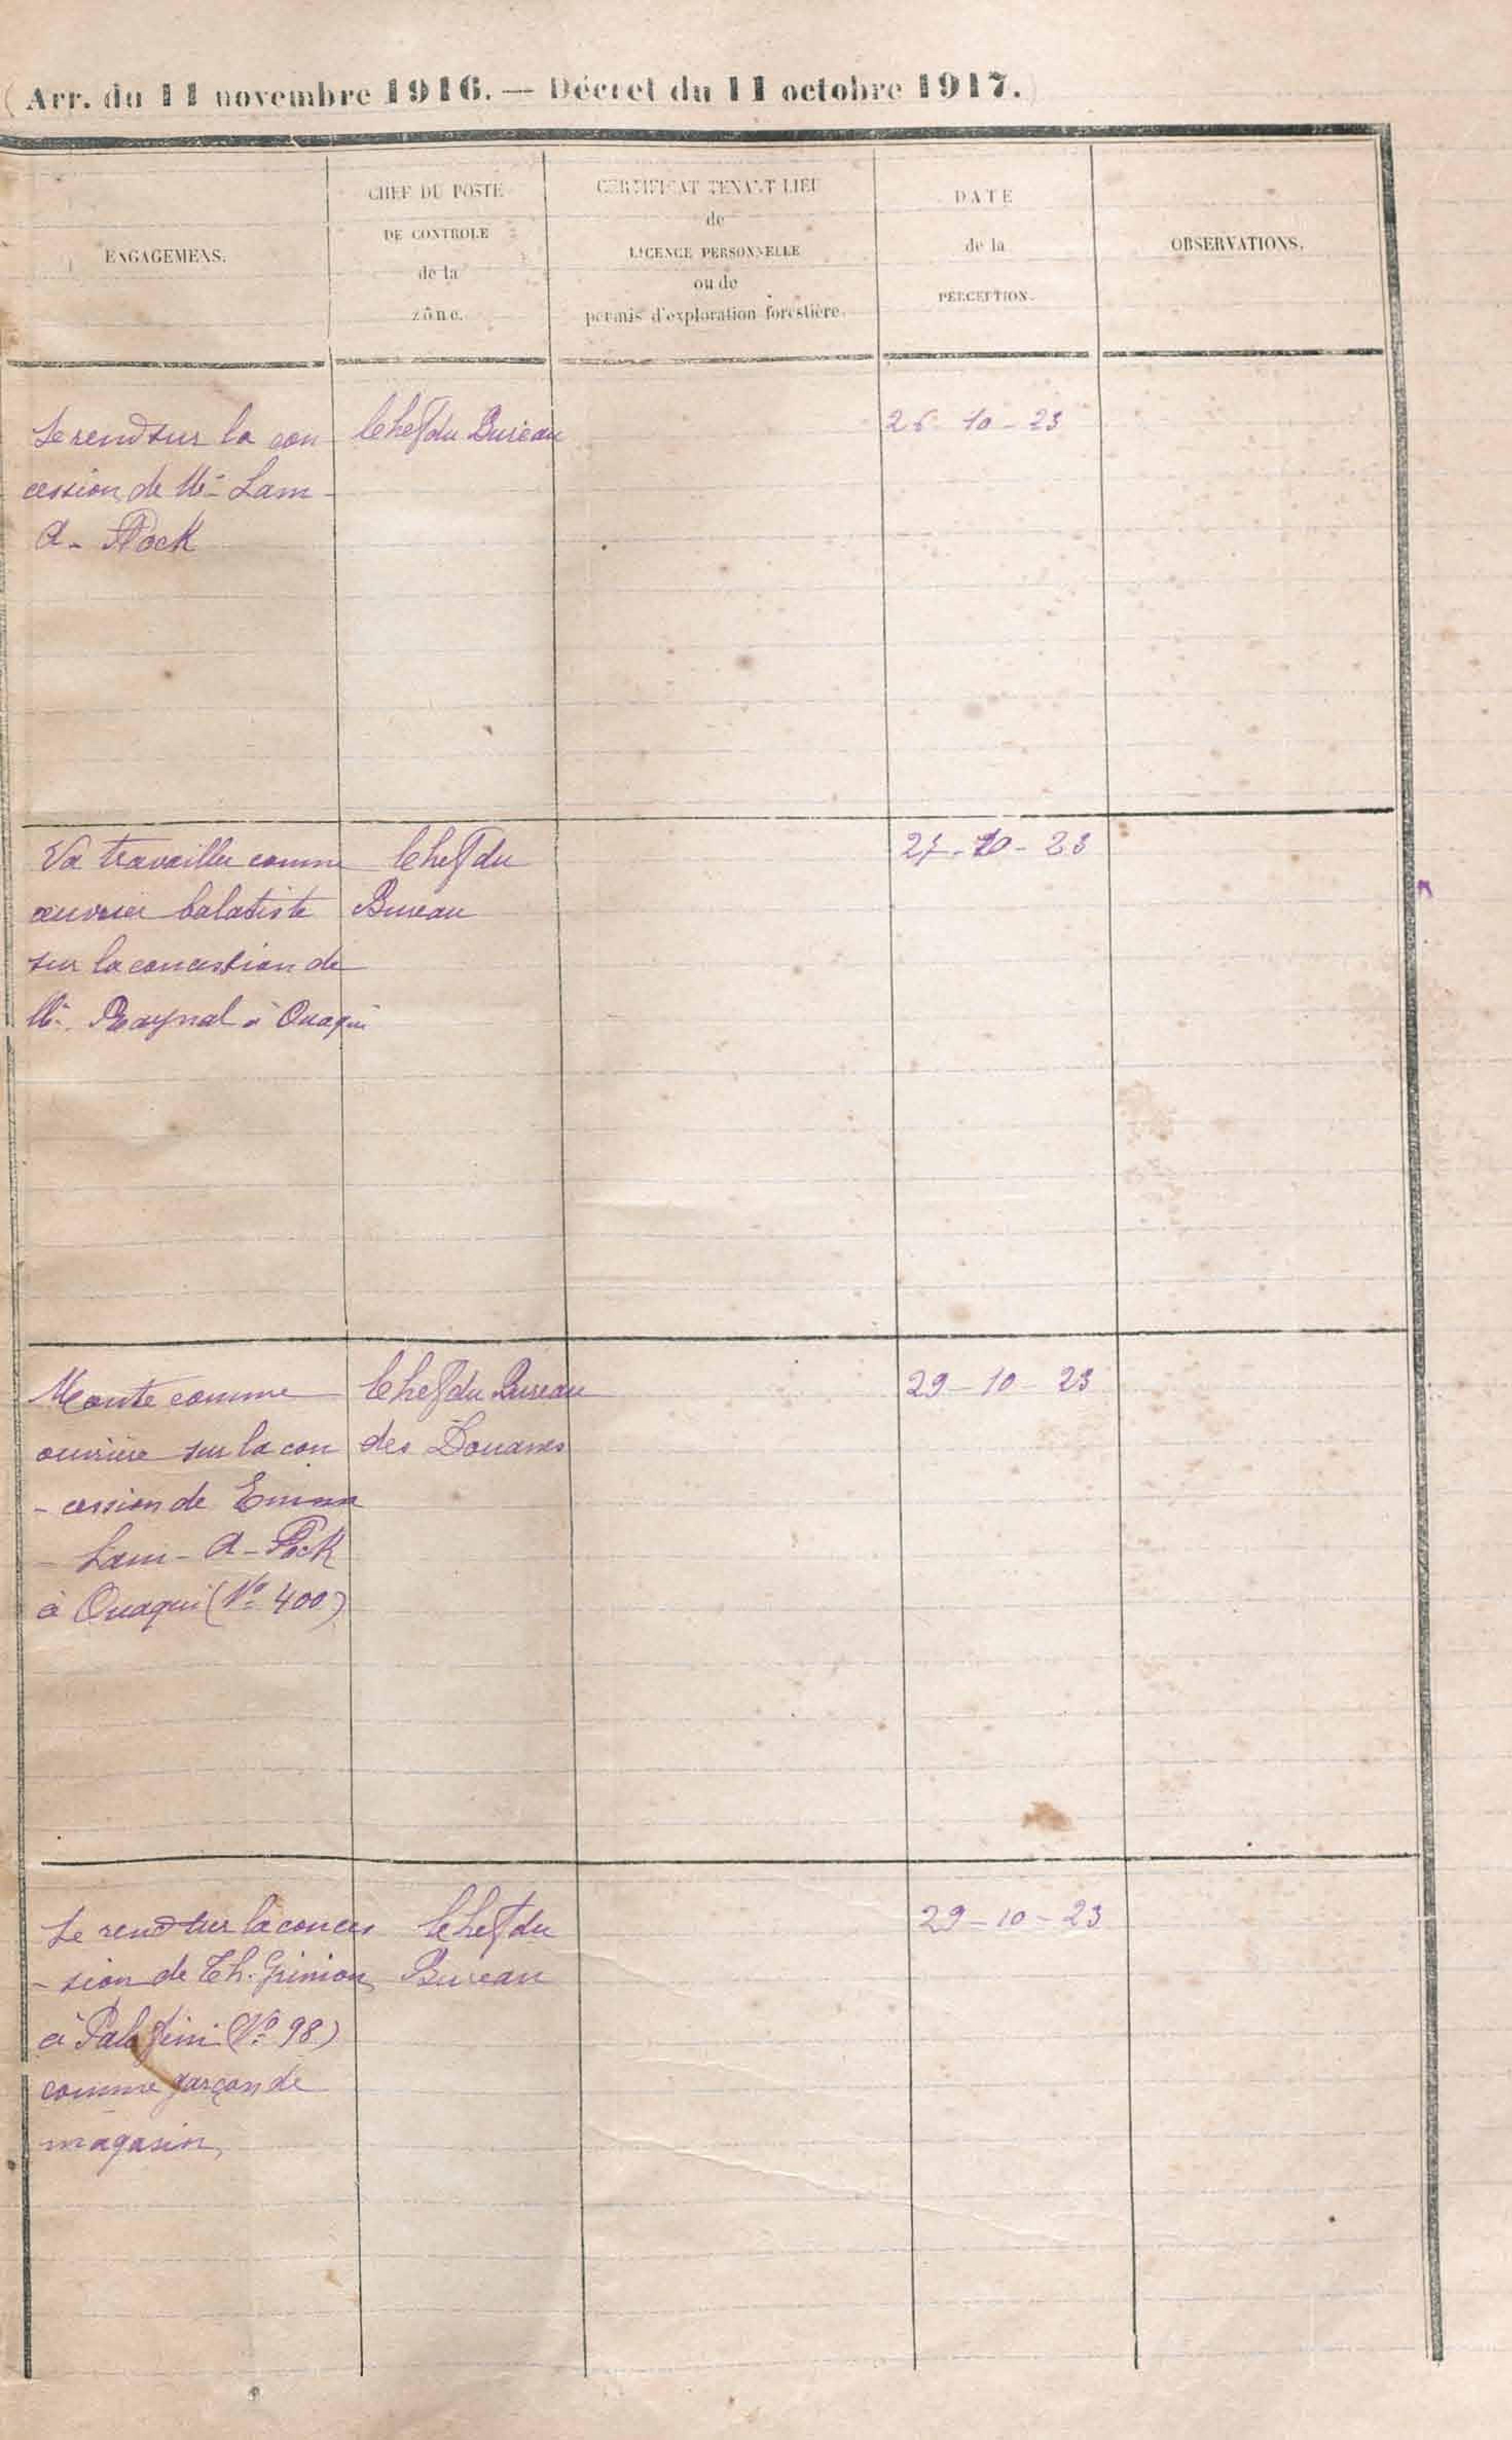 (Arr. du 11 novembre 1916. — Décret du 11 octobre 1917.)
ENGAGEMENS.
CHEF DU POSTE
DE CONTROLE
de la
zône.
CERTIFICAT TENANT LIEU
de
LICENCE PERSONNELLE
ou de
permis d'exploration forestière.
DATE
de la
PERCEPTION.
OBSERVATIONS.
Se rend sur la con
cession de Mr Lam -
A - Fock
Chef du Bureau
26 - 10 - 23
Va travailler comme
ouvrier balatiste
sur la concession de
Mr. Raynal à Ouaqui
Chef du
Bureau
27 - 10 - 23
Monte comme
ouvrière sur la con
- cession de Emma
Lam - A - Fock
à Ouaqui (No 400)
Chef du Bureau
des Douanes
29 - 10 - 23
Se rend sur la conces
- sion de Th.
à (No 98)
comme garçon de
magasin,
Chef du
Bureau
29 - 10 - 23